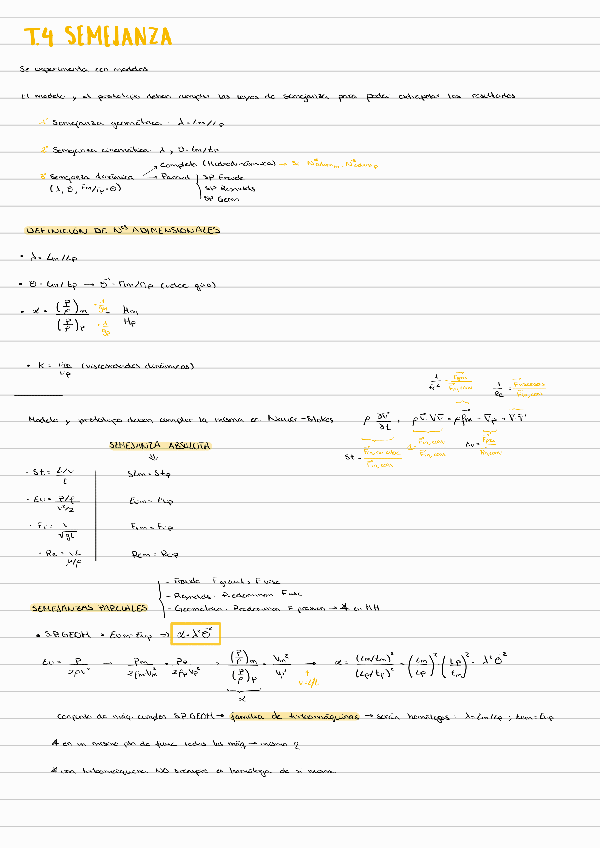 T.4 SEMEJANZA
Se experimenta con modelos
El modelo y el prototipo deben cumplir las leyes de semejanza para poder extrapolar los resultados
1ª Semejanza geométrica: λ = Lm/Lp
2ª Semejanza cinemática: λ, θ = tm/tp
→ Completa (Hidrodinámica) →
3ª Semejanza dinámica → Parcial
SP Froude
(λ, θ, Fm/Fp = θ)
SP Reynolds
SP Geom
DEFINICIÓN DE Nos ADIMENSIONALES
• λ = Lm/Lp
• θ = tm/tp → θ⁻¹ = nm/np (vdce giro)
• α = (P/ρ)m / (P/ρ)p Hm / Hp
• K = μm/μp (viscosidades dinámicas)
Modelo y prototipo deben cumplir la misma ec. Navier-Stokes
SEMEJANZA ABSOLUTA
- St = L/v / t Stm = Stp
- Eu = P/ρ / v²/2 Eum = Eup
- Fr = v / √gL Frm = Frp
- Re = vL / μ/ρ Rem = Rep
- Froude
- Reynolds: Predominan Fvisc
SEMEJANZAS PARCIALES
- Geométrica: Predominan F presión → en MH
• SP.GEOM = Eum = Eup → α = λ²θ⁻²
Eu = P / 2ρv² → Pm / 2ρmVm² = Pp / 2ρpVp² → (P/ρ)m / (P/ρ)p = Vm² / Vp² → α = (Lm/tm)² / (Lp/tp)² = (Lm/Lp)² (tp/tm)² = λ²θ⁻²
α
v = L/t
Conjunto de máq. cumplen SP.GEOM → familia de turbomáquinas → serán homólogas: λ = Lm/Lp ;
en un mismo pto de func. todas las máq → misma η
turbomáquina NO siempre es homóloga de sí misma